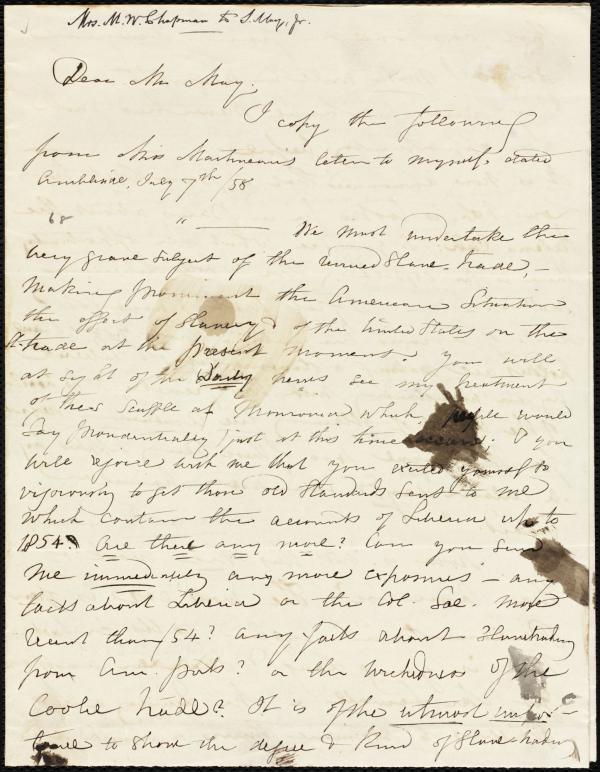 Mrs. M. W. Chapman to S. May, Jr.
Dear Mr May.
I copy the following
from Miss Martineau's letter to myself, dated
Ambleside, July 7th/58
68
"——— We must undertake the
very grave subject of the renewed Slave-trade, –
making prominent the American Situation,
the effect of Slavery of the United States on the
Sl. trade at the present moment. You will
at sight of the Daily news see my treatment
of the Scuffle at Monrovia which, people would
say providentially just at this time occurred. & you
will rejoice with me that you exerted yourself so
vigorously to get those old Standards sent to me
which contain the accounts of Liberia up to
1854. Are there any more? Can you send
me immediately any more exposures – any
facts about Liberia or the Col. Soc. more
recent than /54? any facts about Slavetrading
from Am. ports? or the wickedness of the
Coolie trade? It is of the utmost impor-
tance to show the degree & kind of Slave-trading